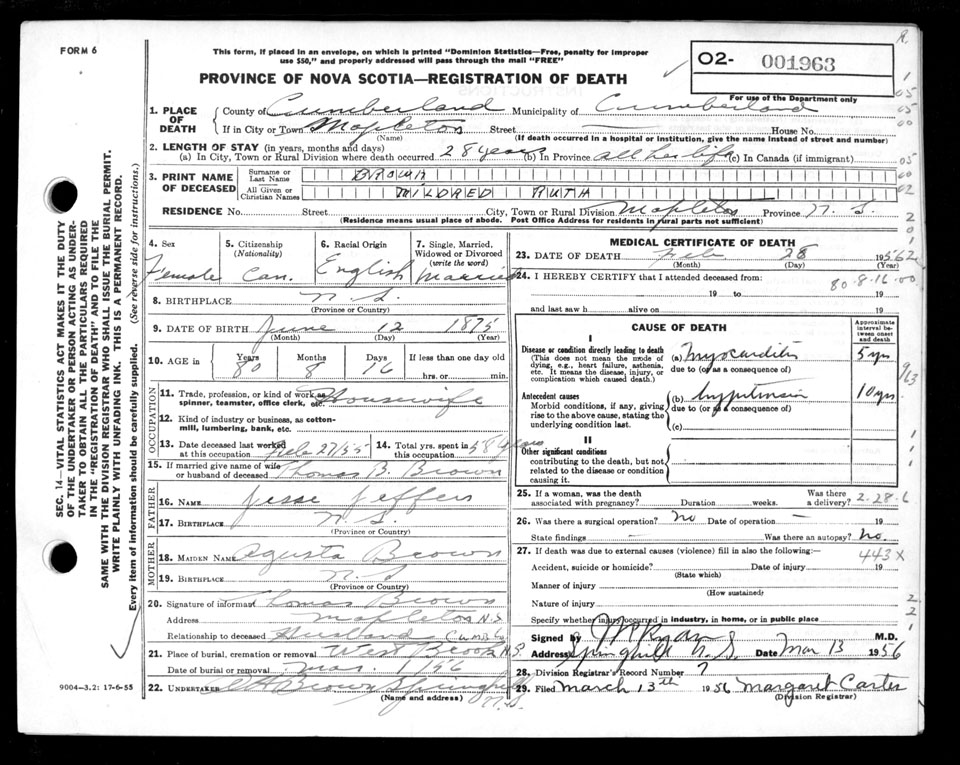 FORM 6
This form, if placed in an envelope, on which is printed "Dominion Statistics—Free, penalty for improper
use $50," and properly addressed will pass through the mail "FREE"
PROVINCE OF NOVA SCOTIA—REGISTRATION OF DEATH
O2- 001963
For use of the Department only
1. PLACE OF DEATH County of Cumberland Municipality of Cumberland
If in City or Town Mapleton Street — House No.
(Name) (If death occurred in a hospital or institution, give the name instead of street and number)
2. LENGTH OF STAY (in years, months and days)
(a) In City, Town or Rural Division where death occurred 28 years (b) In Province all her life (c) In Canada (if immigrant)
3. PRINT NAME OF DECEASED Surname or Last Name BROWN
All Given or Christian Names MILDRED RUTH
RESIDENCE No. Street City, Town or Rural Division Mapleton Province N. S.
(Residence means usual place of abode. Post Office Address for residents in rural parts not sufficient)
SEC. 14—VITAL STATISTICS ACT MAKES IT THE DUTY
OF THE UNDERTAKER OR PERSON ACTING AS UNDER-
TAKER TO OBTAIN ALL THE PARTICULARS REQUIRED
IN THE "REGISTRATION OF DEATH" AND TO FILE THE
SAME WITH THE DIVISION REGISTRAR WHO SHALL ISSUE THE BURIAL PERMIT.
WRITE PLAINLY WITH UNFADING INK. THIS IS A PERMANENT RECORD.
Every item of information should be carefully supplied. (See reverse side for instructions.)
4. Sex Female
5. Citizenship (Nationality) Can.
6. Racial Origin English
7. Single, Married, Widowed or Divorced (write the word) Married
8. BIRTHPLACE N. S.
(Province or Country)
9. DATE OF BIRTH June 12 1875
(Month) (Day) (Year)
10. AGE in Years 80 Months 8 Days 16 If less than one day old
hrs. or min.
OCCUPATION
11. Trade, profession, or kind of work as spinner, teamster, office clerk, etc. Housewife
12. Kind of industry or business, as cotton-mill, lumbering, bank, etc.
13. Date deceased last worked at this occupation Feb 27/55 14. Total yrs. spent in this occupation 58 years
15. If married give name of wife or husband of deceased Thomas B. Brown
FATHER
16. NAME Jesse Jeffers
17. BIRTHPLACE N. S.
(Province or Country)
MOTHER
18. MAIDEN NAME Agusta Brown
19. BIRTHPLACE N. S
(Province or Country)
20. Signature of informant Thomas Brown
Address Mapleton N.S.
Relationship to deceased Husband Cumb Co
21. Place of burial, cremation or removal West Brook N.S.
Date of burial or removal Mar. 1 56
22. UNDERTAKER Brown Springhill
(Name and address) N.S.
9004—3.2: 17-6-55
MEDICAL CERTIFICATE OF DEATH
23. DATE OF DEATH Feb 28 1956
(Month) (Day) (Year)
24. I HEREBY CERTIFY that I attended deceased from:
80-8-16-00
19 to 19
and last saw h alive on 19
CAUSE OF DEATH
Approximate interval between onset and death
I
Disease or condition directly leading to death (a) Myocarditis 5 yrs
(This does not mean the mode of dying, e.g., heart failure, asthenia, etc. It means the disease, injury, or complication which caused death.)
due to (or as a consequence of)
Antecedent causes (b) hypertension 10 yrs.
Morbid conditions, if any, giving rise to the above cause, stating the underlying condition last.
due to (or as a consequence of)
(c)
II
Other significant conditions
contributing to the death, but not related to the disease or condition causing it.
25. If a woman, was the death associated with pregnancy? Duration weeks. Was there a delivery? 2-28-6
26. Was there a surgical operation? no Date of operation — 19
State findings — Was there an autopsy? no.
27. If death was due to external causes (violence) fill in also the following:— 443X
Accident, suicide or homicide? Date of injury 19
(State which)
Manner of injury
(How sustained)
Nature of injury
Specify whether injury occurred in industry, in home, or in public place
Signed by M Ryan M.D.
Address Springhill N. S. Date Mar 13 1956
28. Division Registrar's Record Number 7
29. Filed March 13th 1956 Margaret Carter
(Division Registrar)